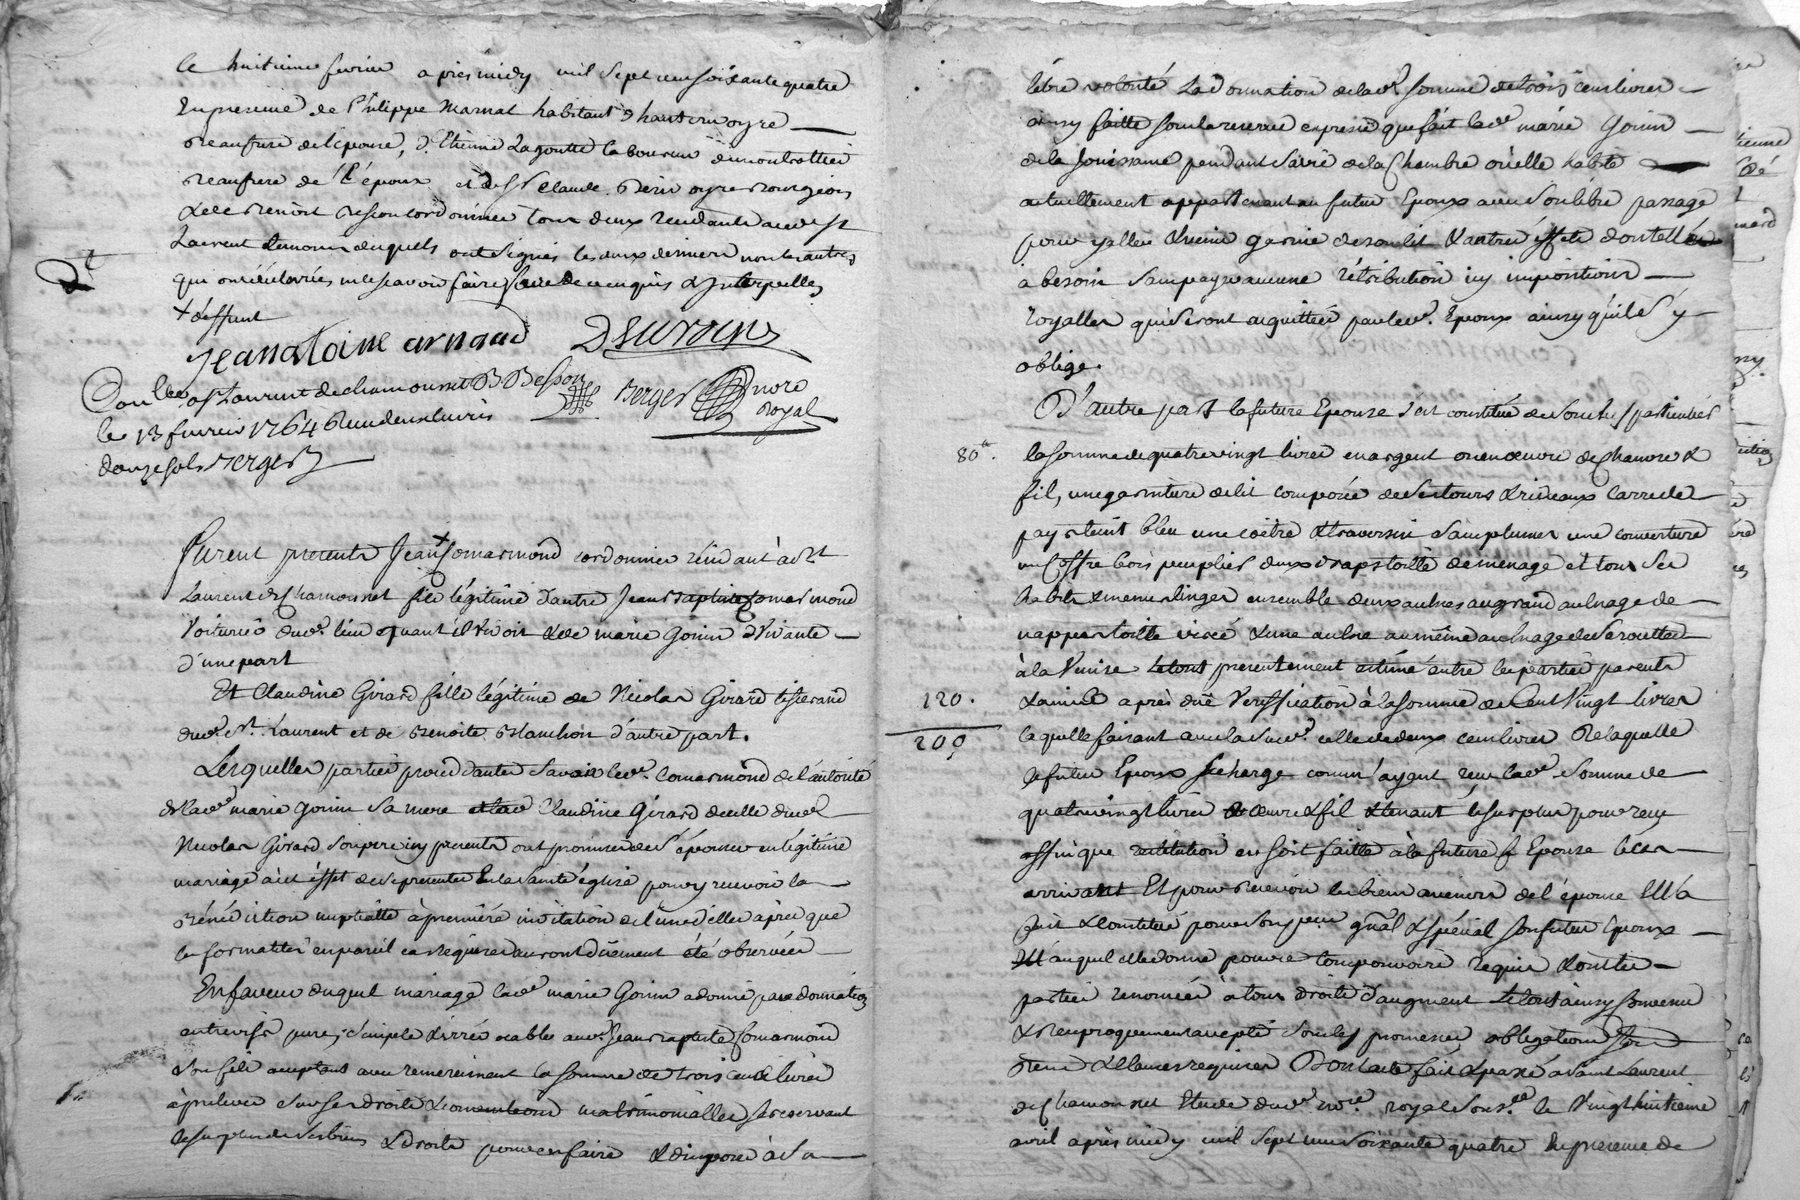 Le huitieme fevrier apres midy mil sept cens soixante quatre
En presence de Philippe Marnat habitant d'hauterivoyre
Beaufrere de l'epouse, d'Etienne Lagoutte laboureur de montrottier
Beaufrere de l'Epoux et de Sr Claude bourgeois
& de Benoist cordonnier tous deux residants aud. St
Laurent temoins desquels ont signés les deux derniers non les autres
qui ont déclarés ne sçavoir faire de ce enquis & Interpellés
+ deffunt
Jean atoine arnaud
Conllé a St Laurent de chamousset B Besson Berger nore
le 13 fevrier 1764 Royal
douze sols Berger
Furent presents Jean + Comarmond cordonnier résidant à St
Laurent de Chamousset fils légitime d'autre Jean Baptiste Comarmond
Voiturier dud. lieu quant il vivoit & de marie Gonin Vivante
d'une part
Et Claudine Girard fille légitime de Nicolas Girard tisserand
dud. St Laurent et de Benoite Blanchon d'autre part.
Lesquelles parties procédantes savoir led. Comarmond de l'autorité
de lad. marie Gonin sa mere et lad. Claudine Girard de celle dud.
Nicolas Girard son pere icy presents ont promis de s'épouser en légitime
mariage à cet effet de se presenter En la Sainte église pour y recevoir la
Bénédiction nuptialle à première invitation de l'une d'elles après que
les formalités en pareil cas requises auront duement été observées
En faveur duquel mariage lad. marie Gonin a donné par donnation
entrevifs pure, simple & irrévocable aud. Jean Baptiste Comarmond
son fils acceptant avec remerciment la somme de trois cents livres
à prelever sur ses droits & matrimonialles se reservant
le surplus de ses biens & droits pour en faire & disposer à sa
libre volonté La donnation de lad. somme de trois cens livres
ainsy faitte sous la reserve expresse que fait lad. marie Gonin
de la Jouissance pendant sa vie de la Chambre ou elle habite
actuellement appartenant au futur Epoux avec son libre passage
pour y aller & venir garnie de son lit & autres effets dont elle
à besoin sans payer aucune rétribution ny impositions
royalles qui seront acquittées par led. Epoux ainsy qu'il s'y
oblige.
D'autre part la future Epouse s'est constitué de son chef particulier
80 ll. la somme de quatre vingt livres en argent ou en oeuvre de Chanvre &
fil, une garniture de lit composée de ses tours & rideaux
pays teint bleu une coitre & traversin sans plumes une couverture
un Coffre bois peuplier deux draps toille de menage et tous ses
habits & menus linges ensemble deux aulnes au grand aulnage de
nappes toille & une aulne au même aulnage de Serviettes
à la Venise le tout presentement estimé entre les parties parents
120. & amis après duë Verification à la somme de Cent Vingt livres
200 laquelle faisant avec la susd. celle de deux cens livres De laquelle
le futur Epoux se charge comm'ayant reçu lad. somme de
quatre vingt livres oeuvre & fil & tenant le surplus pour reçu
affin que restitution en soit faitte à la future Epouse le cas
arrivant Et pour recevoir les biens avenirs de l'épouse Ella
fait & constitué pour son procur. gnãl & spécial son futur Epoux
auquel elle donne pouvoir requis & ont les
parties renoncées à tous droits d'augment Le tout ainsy convenu
& réciproquement accepté sous les promesses, obligations
& clauses requises Dont acte fait & passé à Saint Laurent
de Chamousset Etude dud. nore royal souse. le Vingt huitieme
avril après midy mil sept cens soixante quatre En presence de